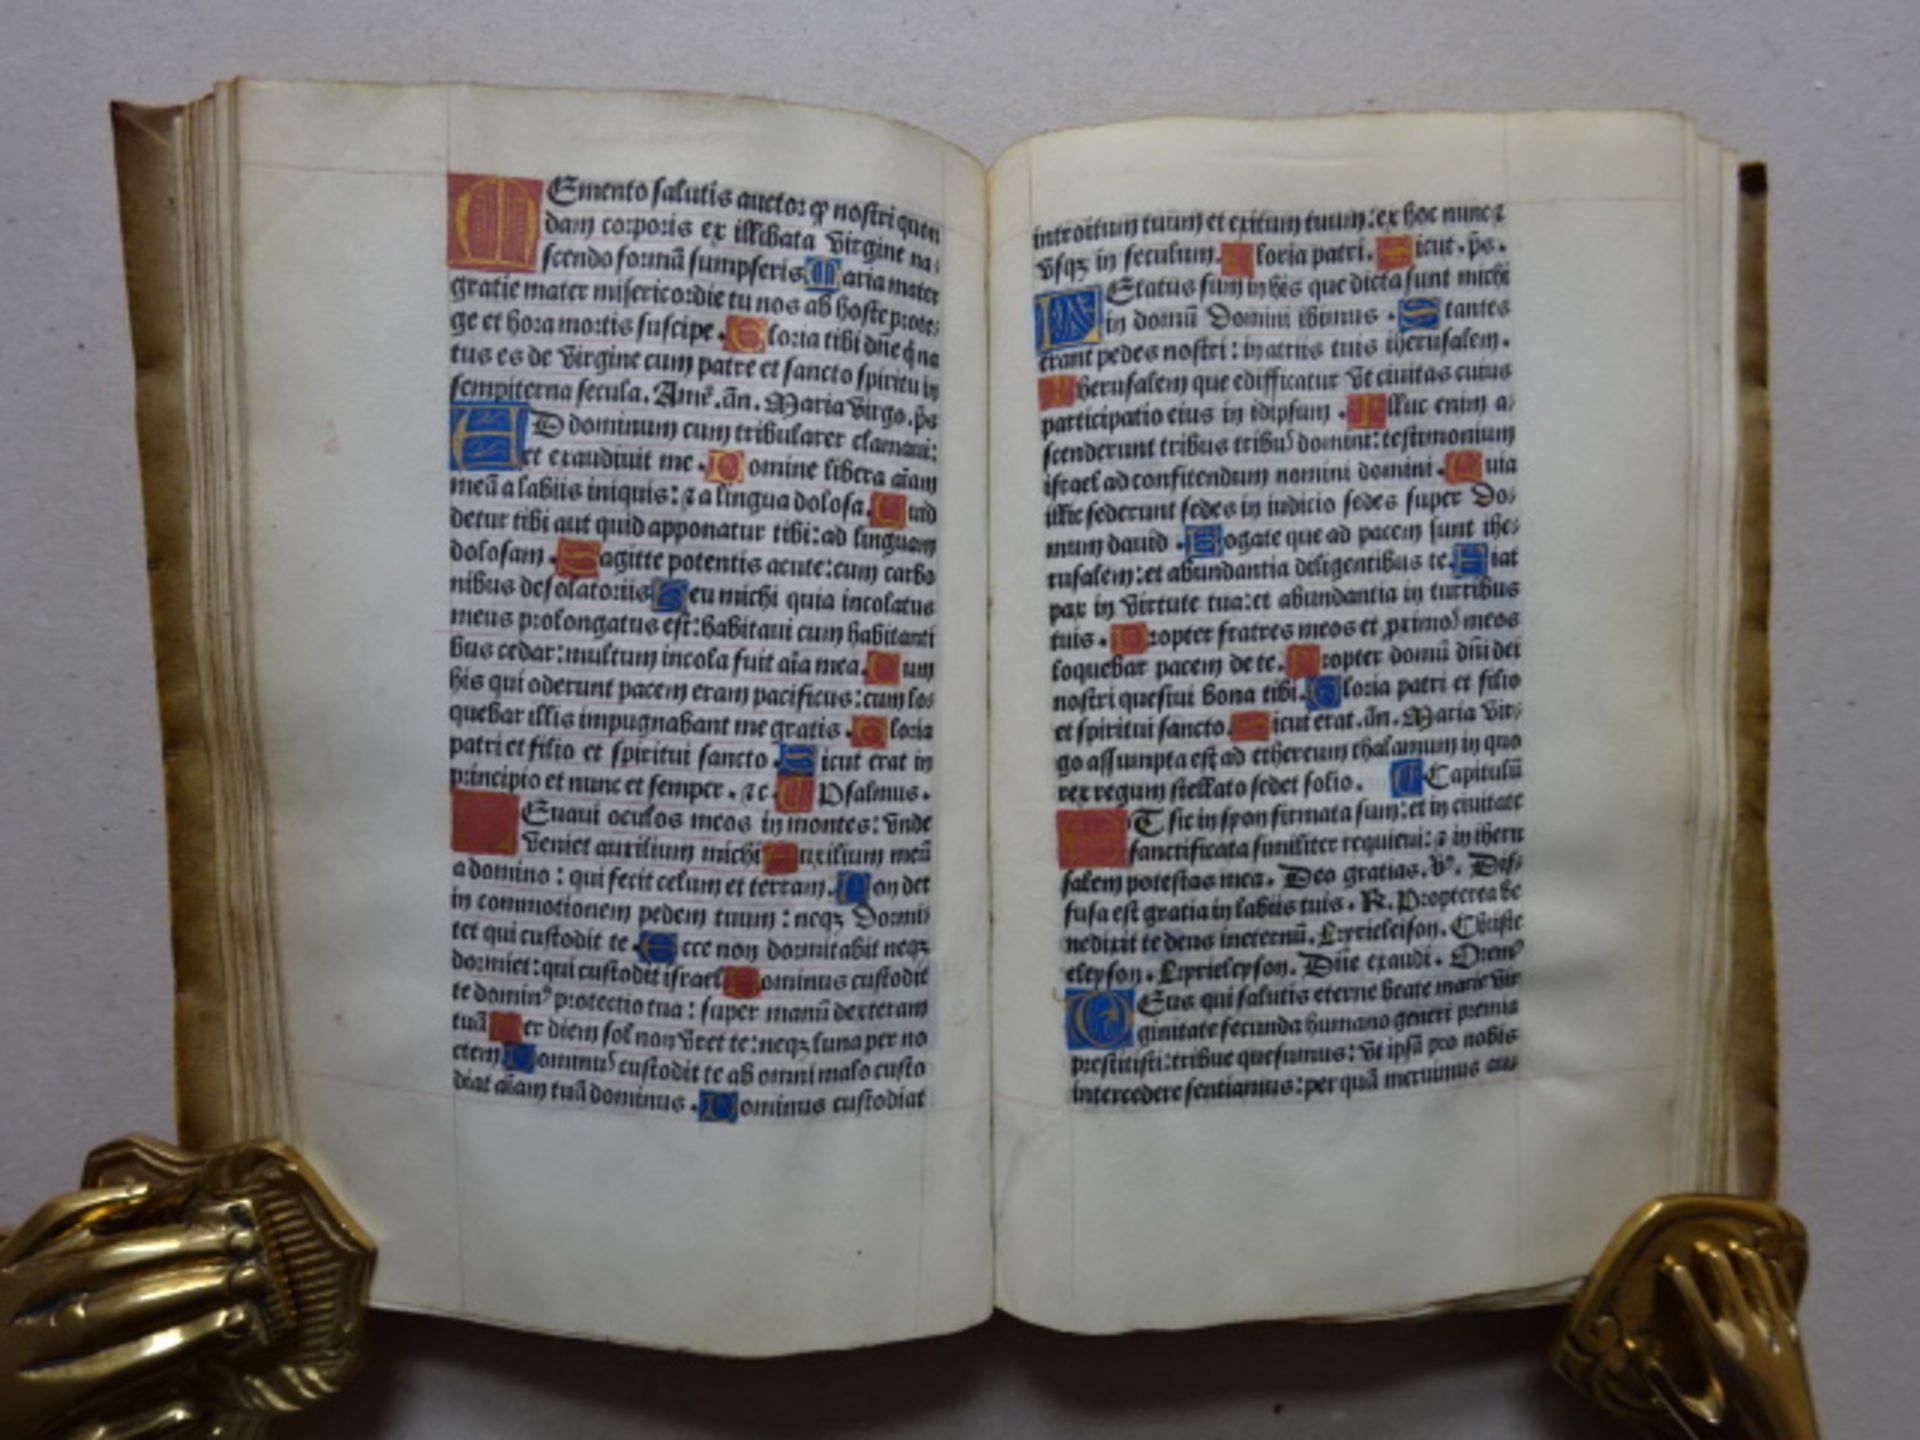 MEmento salutis auctor qp nostri quon
dam corporis ex illibata virgine na:
scendo formā sumpseris Maria mater
gratie mater misericordie tu nos ab hoste prote:
ge et hora mortis suscipe. Gloria tibi dñe q̇ na
tus es de virgine cum patre et sancto spiritu in
sempiterna secula. Amē. añ. Maria virgo. ps̄
AD dominum cum tribularer clamaui:
et exaudiuit me. Domine libera aīam
meā a labiis iniquis: ⁊ a lingua dolosa. Quid
detur tibi aut quid apponatur tibi: ad linguam
dolosam. Sagitte potentis acute: cum carbo
nibus desolatoriis Heu michi quia incolatus
meus prolongatus est: habitaui cum habitanti
bus cedar: multum incola fuit aīa mea. Cum
his qui oderunt pacem eram pacificus: cum lo:
quebar illis impugnabant me gratis. Gloria
patri et filio et spiritui sancto. Sicut erat in
principio et nunc et semper. ⁊c. ¶ Psalmus.
LEuaui oculos meos in montes: vnde
veniet auxilium michi Auxilium meū
a domino: qui fecit celum et terram. Non det
in commotionem pedem tuum: neqꝫ dormi
tet qui custodit te. Ecce non dormitabit neqꝫ
dormiet: qui custodit israel Dominus custodit
te dominꝰ protectio tua: super manū dexteram
tuā Per diem sol non vret te: neqꝫ luna per no
ctem Dominuꝰ custodit te ab omni malo custo
diat aīam tuā dominus. Dominus custodiat
introitum tuum et exitum tuum: ex hoc nunc ⁊
vsqꝫ in seculum. Gloria patri. Sicut. ps̄.
LEtatus sum in his que dicta sunt michi
in domū Domini ibimus. Stantes
erant pedes nostri: in atriis tuis iherusalem.
Iherusalem que edifficatur vt ciuitas cuius
participatio eius in idipsum. Illuc enim a:
scenderunt tribus tribuꝰ domini: testimonium
israel ad confitendum nomini domini. Quia
illic sederunt sedes in iudicio sedes super Do:
mum dauid. Rogate que ad pacem sunt ihe:
rusalem: et abundantia diligentibus te. Fiat
pax in virtute tua: et abundantia in turribus
tuis. Propter fratres meos et ꝓximoꝰ meos
loquebar pacem de te. Propter domū dñi dei
nostri quesiui bona tibi. Gloria patri et filio
et spiritui sancto. Sicut erat. añ. Maria vir:
go assumpta est ad ethereum thalamum in quo
rex regum stellato sedet solio. ¶ Capitulū
ET sic in syon firmata sum: et in ciuitate
sanctificata similiter requieui: ⁊ in iheru
salem potestas mea. Deo gratias. ℣. Dif:
fusa est gratia in labiis tuis. ℟. Propterea be
nedixit te deus in eternū. Kyrieleison. Christe
eleyson. Kyrieleyson. Dñe exaudi. Oremꝰ
DEus qui salutis eterne beate marie vir
ginitate fecunda humano generi premia
prestitisti: tribue quesumus: vt ipsā pro nobis
intercedere sentiamus: per quā meruimus au: